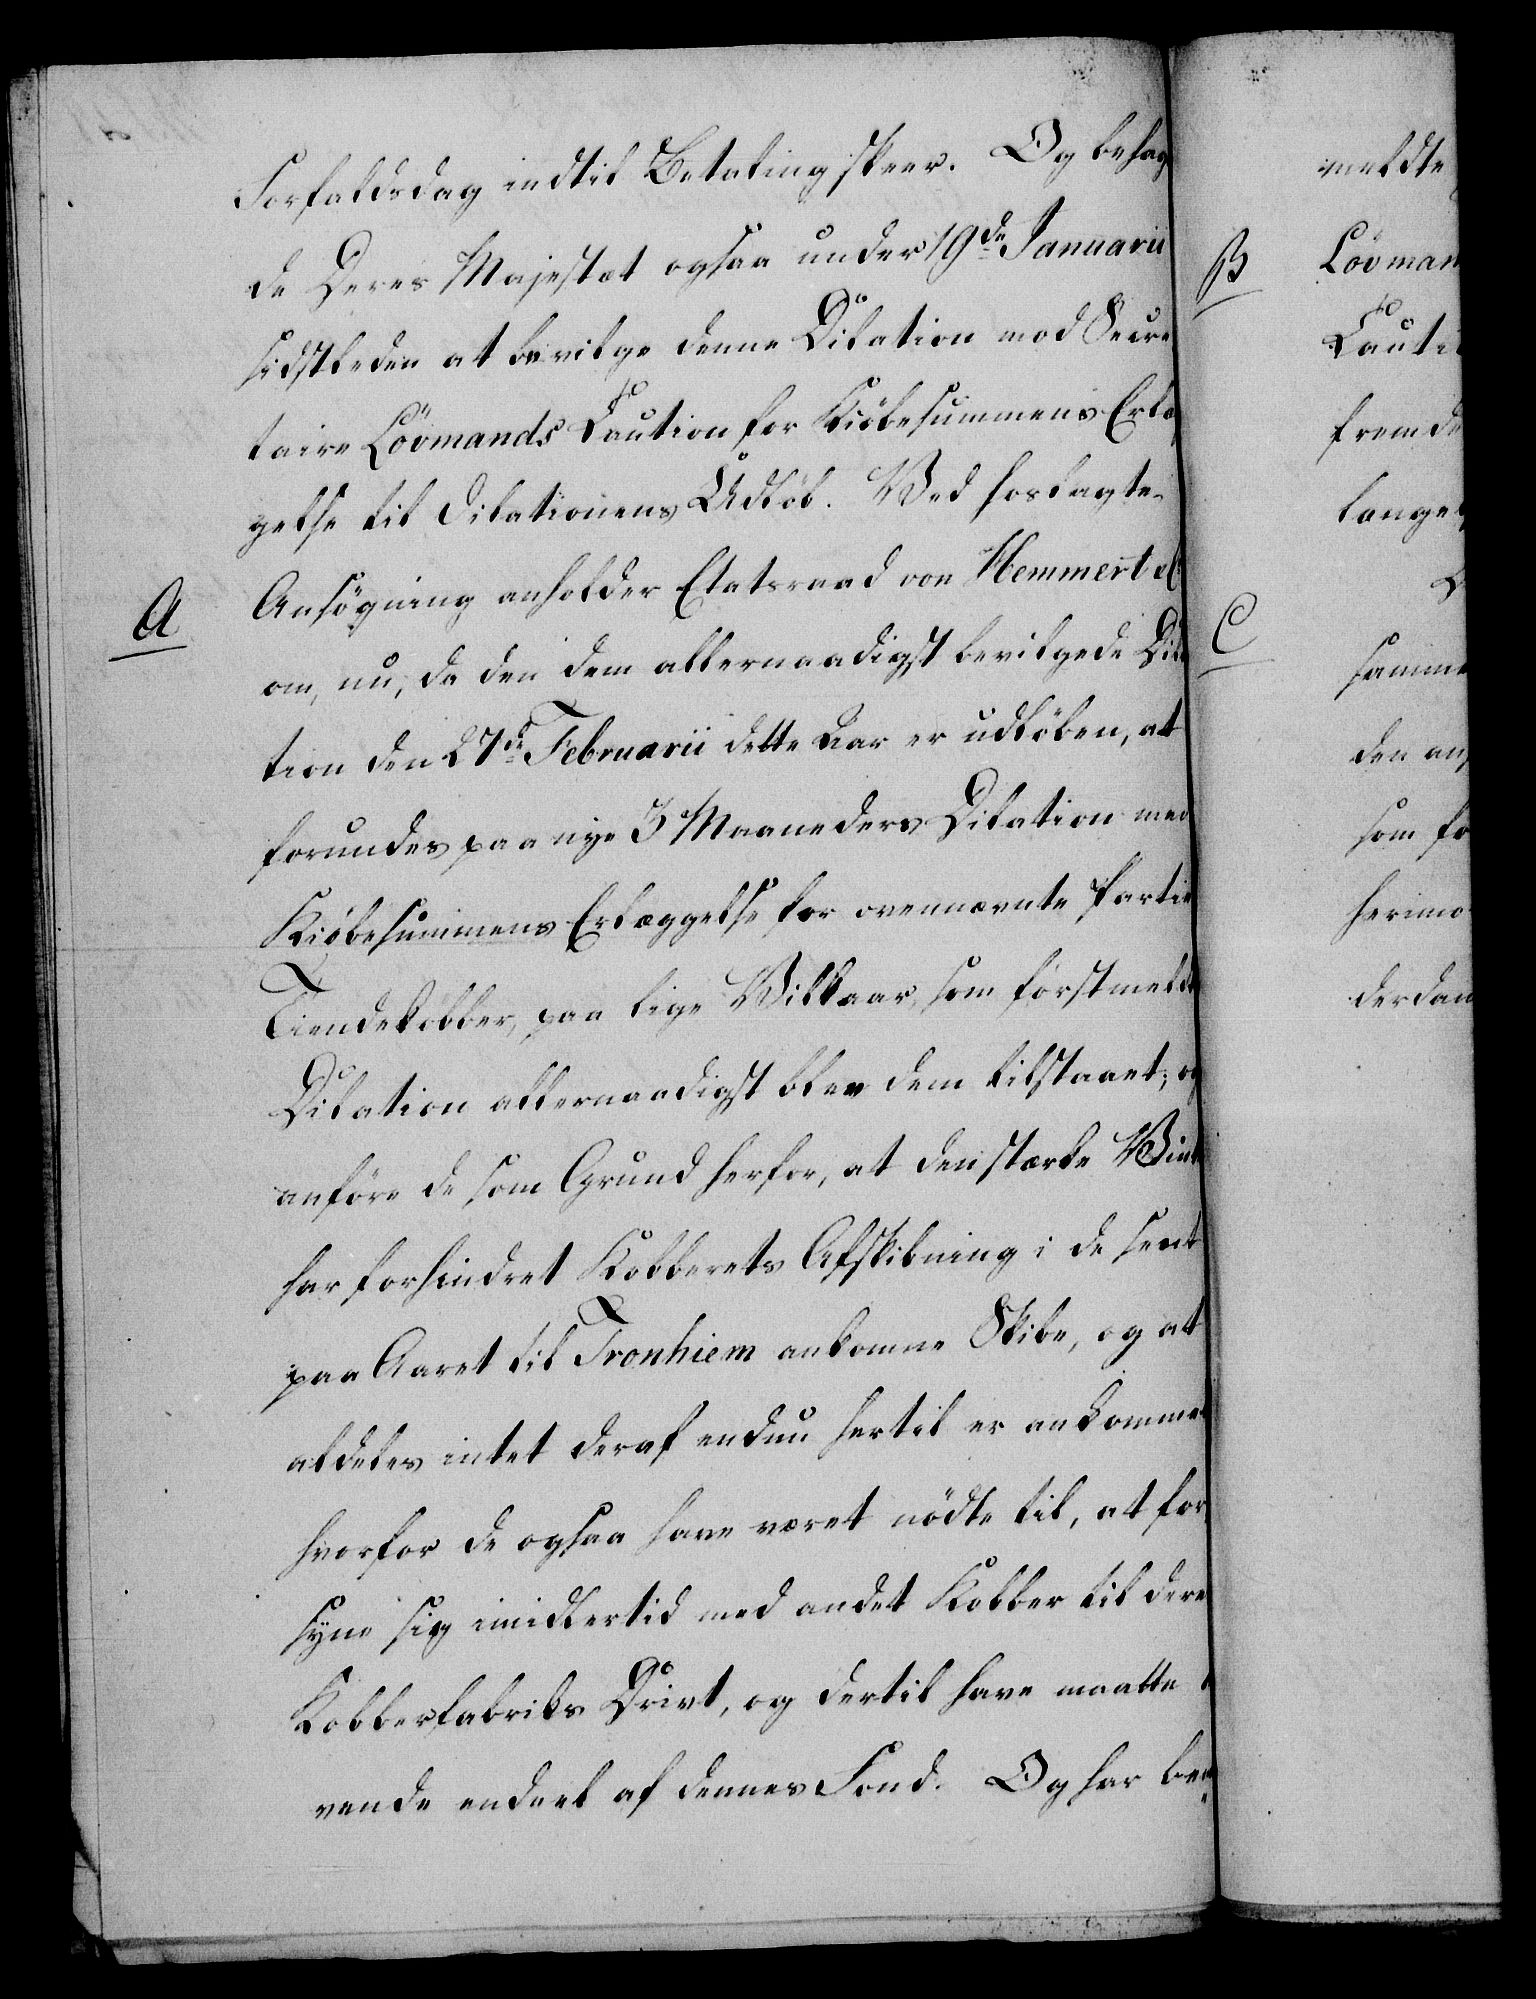 Forfaldsdag indtil Betaling skeer. Og behag
de Deres Majestæt ogsaa under 19de Januarii
sidstleden at bevilge denne Dilation mod Secre
taire Lövmands Caution for Kiöbesummens Erlæ
gelse til Dilationens Udløb. Ved hoslagte
A
Ansögning anholder Etatsraad von Hemmert &c
om, nu, da den dem allernaadigst bevilgede Dila
tion den 27de Februarii dette Aar er udlöben, at
forundes paa nye 3 Maaneders Dilation med
Kiöbesummens Erlæggelse for ovennævnte Partie
Tiendekobber, paa lige Vilkaar, som förstmeldte
Dilation allernaadigst blev dem tilstaaet; og
anföre de som Grund herfor, at den stærke Vint
har forhindret Kobberets Afskibning i de sent
paa Aaret til Tronhiem ankomne Skibe, og at
aldeles intet deraf endnu hertil er ankommet
hvorfor de ogsaa have været nödte til, at for
syne sig imidlertid med andet Kobber til dere
Kobberfabriks Drivt, og dertil have maatte
vende endeel af dennes Fond. Og har be
meldte
B
Lövman
Cauti
fremde
lange
C
samme
den an
som fo
herimo
derdan